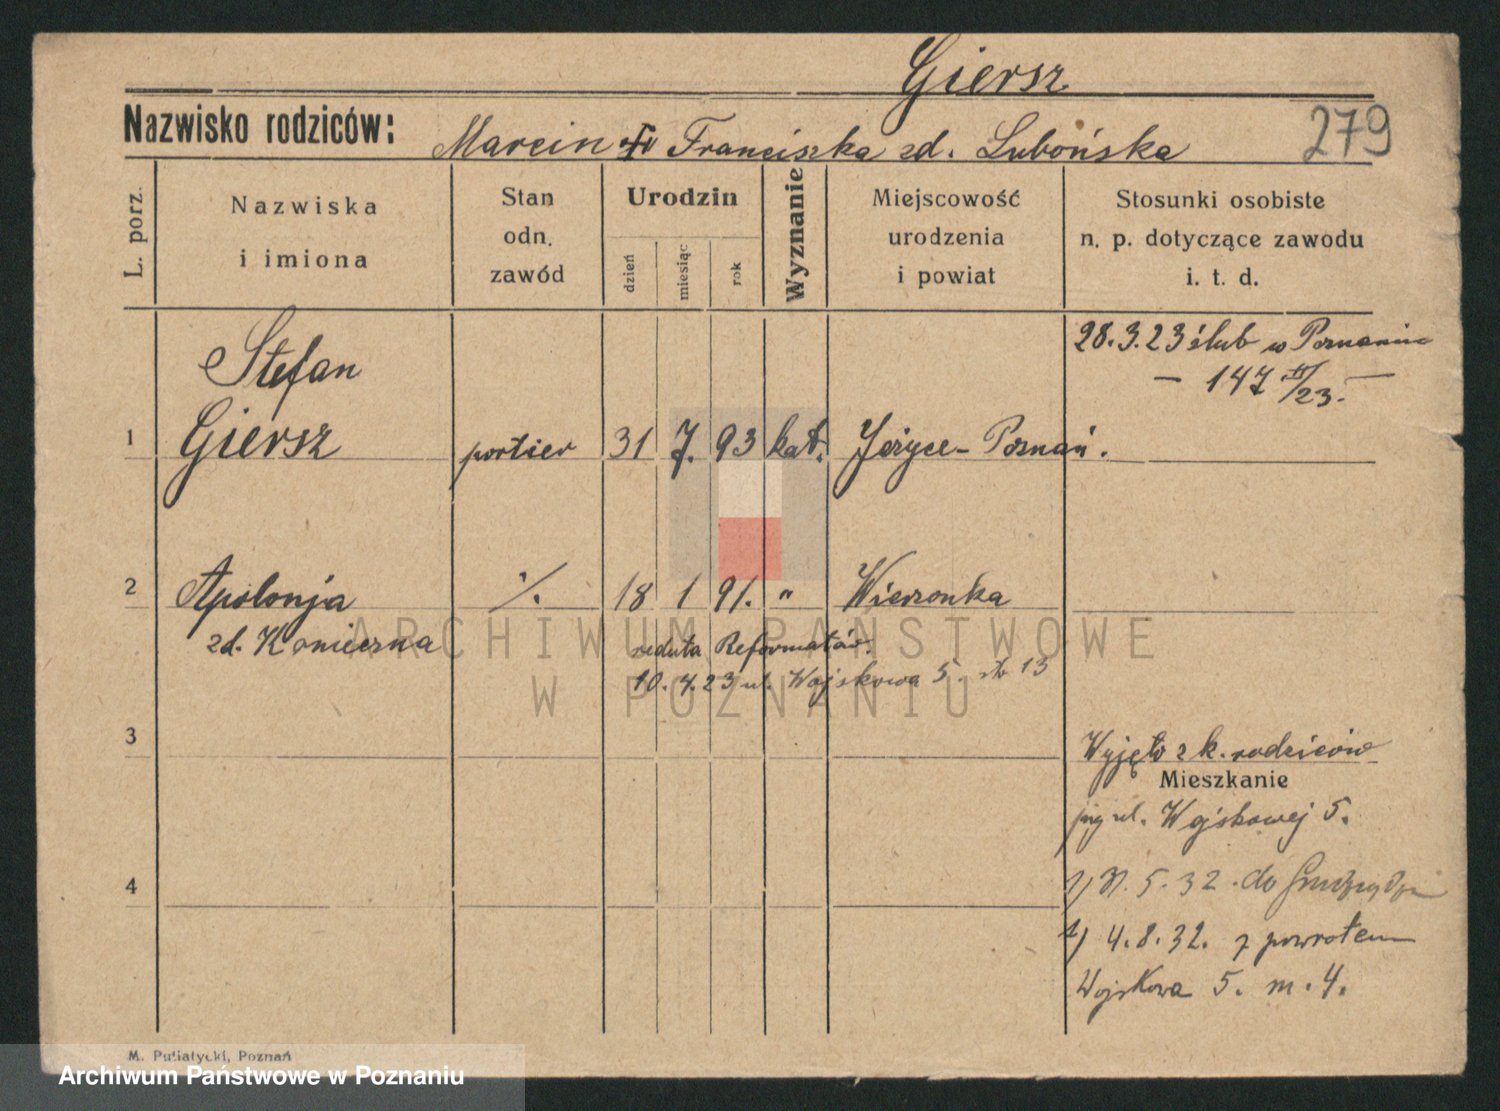 Giersz
Nazwisko rodziców: Marcin Franciszka zd. Lubońska 279
L. porz.
Nazwiska i imiona
Stan odn. zawód
Urodzin
dzień miesiąc rok
Wyznanie
Miejscowość urodzenia i powiat
Stosunki osobiste n. p. dotyczące zawodu i. t. d.
28.3.23 ślub w Poznaniu
— 147 II/23. —
Stefan
1 Giersz portier 31 7. 93 kat. Jeżyce - Poznań.
2 Apolonja ·/. 18 1 91. " Wierzonka
zd. Konieczna reduta Reformatów.
10.4.23 ul. Wojskowa 5. 13
3
Wyjęto z k. rodziców
Mieszkanie
ul. Wojskowej 5.
4
1) 31.5.32. do
2) 4.8.32. z powrotem
Wojskowa 5. m. 4.
M. Putiatycki, Poznań
ARCHIWUM PAŃSTWOWE
W POZNANIU
Archiwum Państwowe w Poznaniu